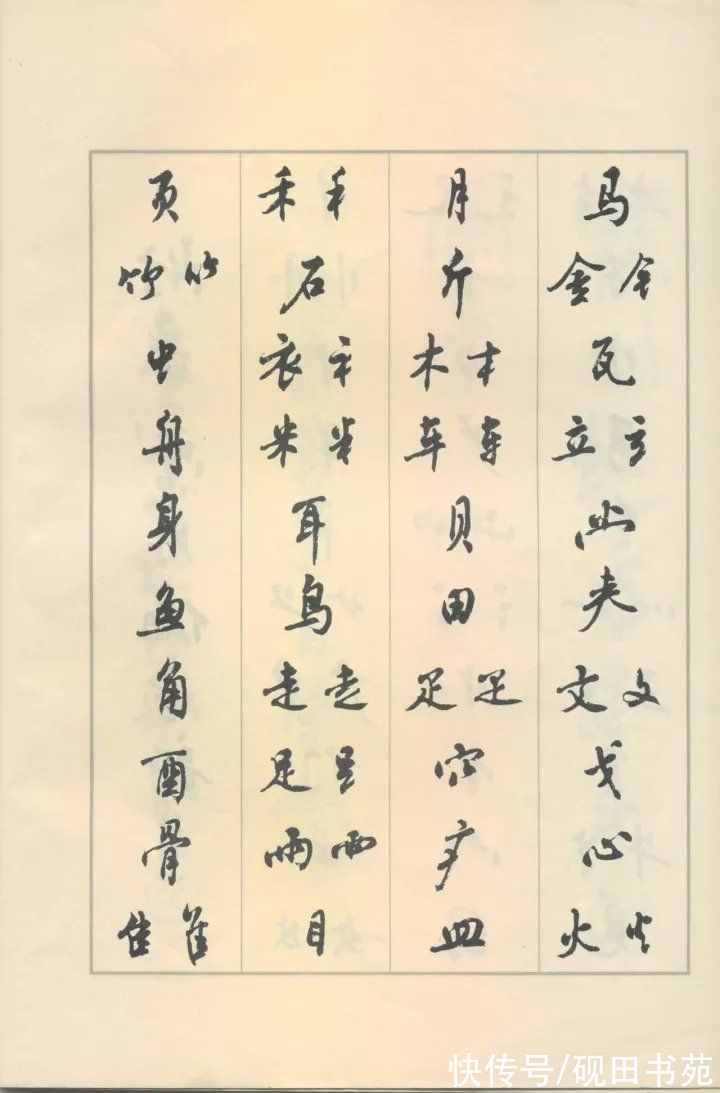 马 金 钅 瓦 立 立 夫 文 文 戈 心 火 火
月 斤 木 木 车 车 贝 田 穴 疒 皿
禾 禾 石 衣 衤 米 米 耳 鸟 走 走 足 足 雨 雨 目
页 竹 竹 虫 舟 身 鱼 角 酉 骨 隹 隹
快传号/砚田书苑